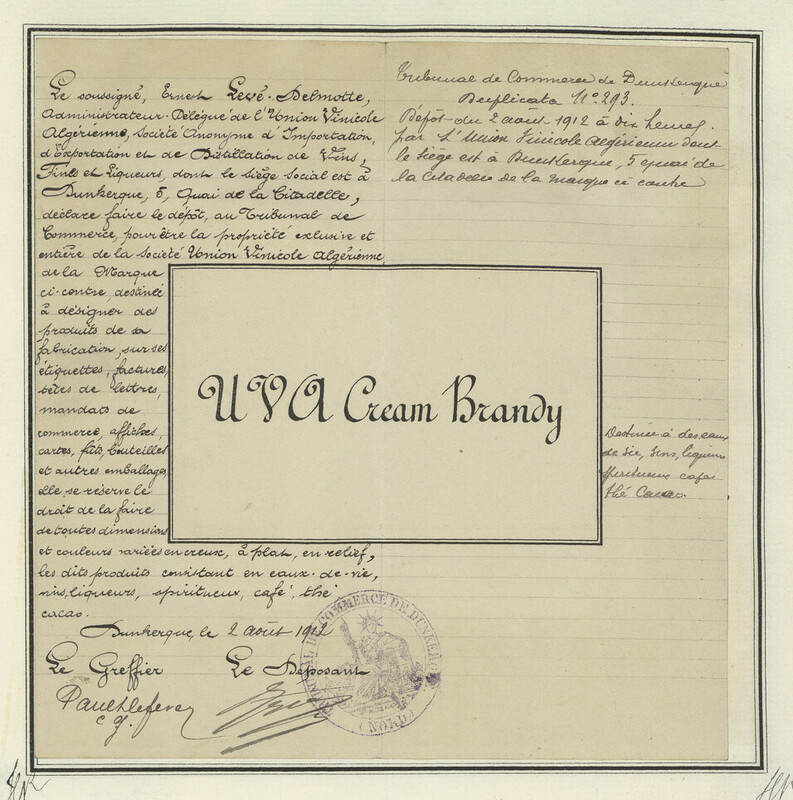 Le soussigné, Ernest Levé-Delmotte,
Administrateur-Délégué de l'Union Vinicole
Algérienne, Société Anonyme d'Importation,
d'Exportation et de Distillation de Vins,
Fines et Liqueurs, dont le Siège Social est à
Dunkerque, 5, Quai de la Citadelle,
déclare faire le dépôt, au Tribunal de
Commerce, pour être la propriété exclusive et
entière de la Société Union Vinicole Algérienne
de la Marque
ci-contre, destinée
à désigner des
produits de sa
fabrication, sur ses
étiquettes, factures,
têtes de lettres,
mandats de
commerce, affiches,
cartes, fûts, bouteilles
et autres emballages,
elle se réserve le
droit de la faire
de toutes dimensions
et couleurs variées en creux, à plat, en relief,
les dits produits consistant en eaux-de-vie,
vins, liqueurs, spiritueux, café, thé
cacao.
Dunkerque, le 2 août 1912
Le Greffier Le Déposant
Tribunal de Commerce de Dunkerque
Duplicata N° 293.
Dépôt du 2 août 1912 à dix heures.
par L'Union Vinicole Algérienne dont
le siège est à Dunkerque, 5 quai de
la Citadelle de la marque ci contre
UVA Cream Brandy
Destinée à des eaux
de vie, vins, liqueurs
spiritueux café
thé Cacao.
TRIBUNAL DE COMMERCE DE DUNKERQUE
(NORD)